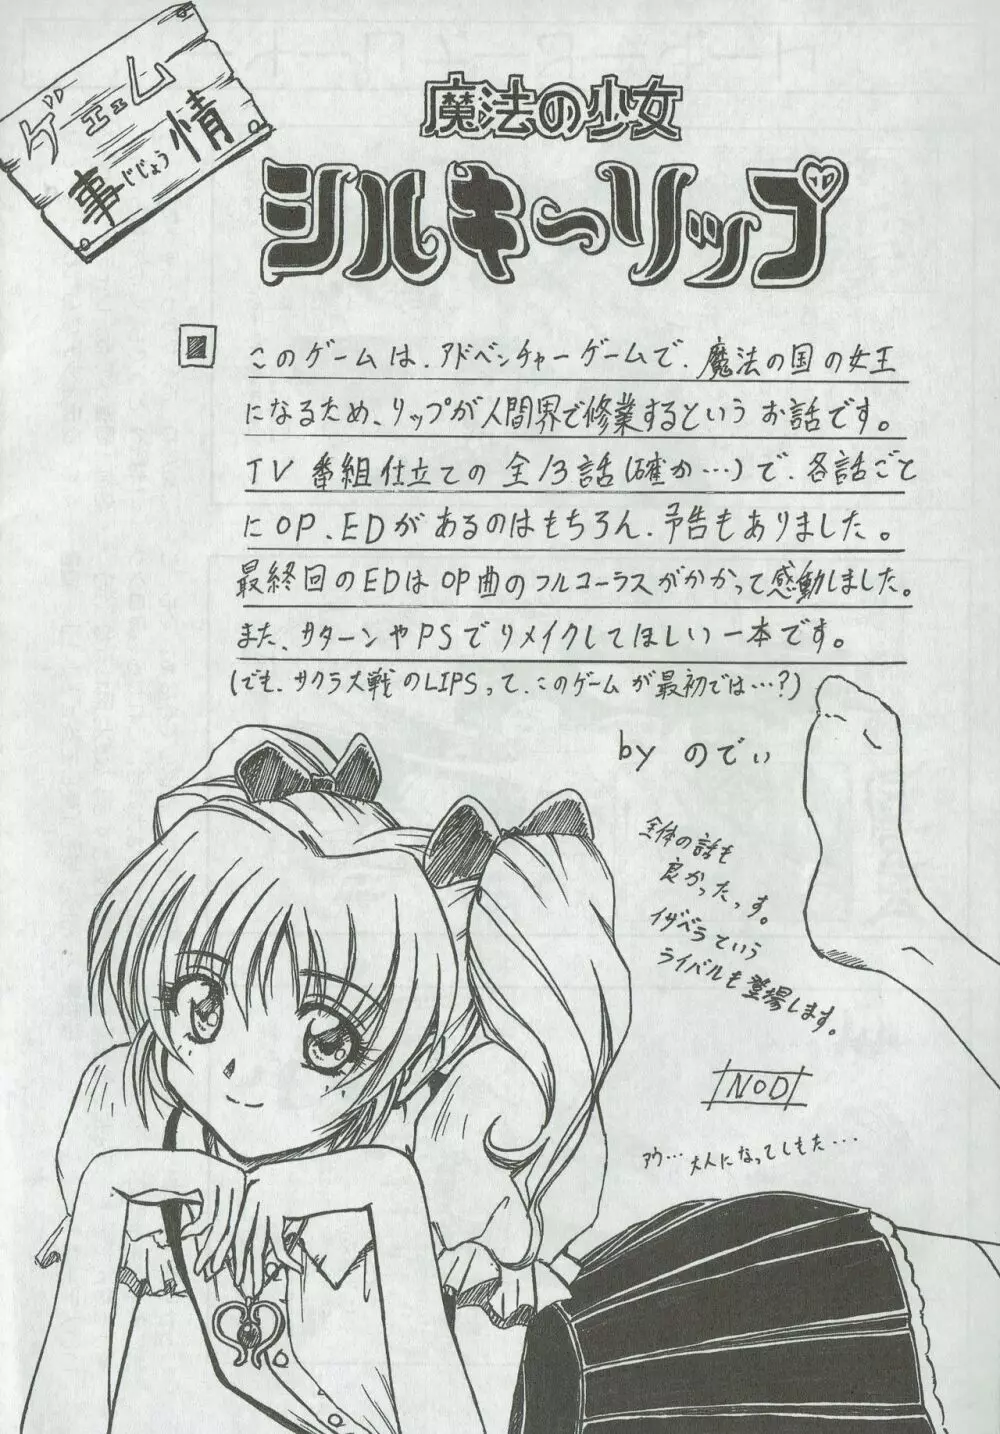 ゲェム
事情
じじょう
魔法の少女
シルキーリップ
このゲームは、アドベンチャーゲームで、魔法の国の女王
になるため、リップが人間界で修業するというお話です。
TV番組仕立ての全13話(確か…)で、各話ごと
にOP、EDがあるのはもちろん、予告もありました。
最終回のEDはOP曲のフルコーラスがかかって感動しました。
また、サターンやPSでリメイクしてほしい一本です。
(でも、サクラ大戦のLIPSって、このゲームが最初では…?)
by のでぃ
全体の話も
良かったっす。
イザベラという
ライバルも登場します。
NOD
アウ… 大人になってしもた…